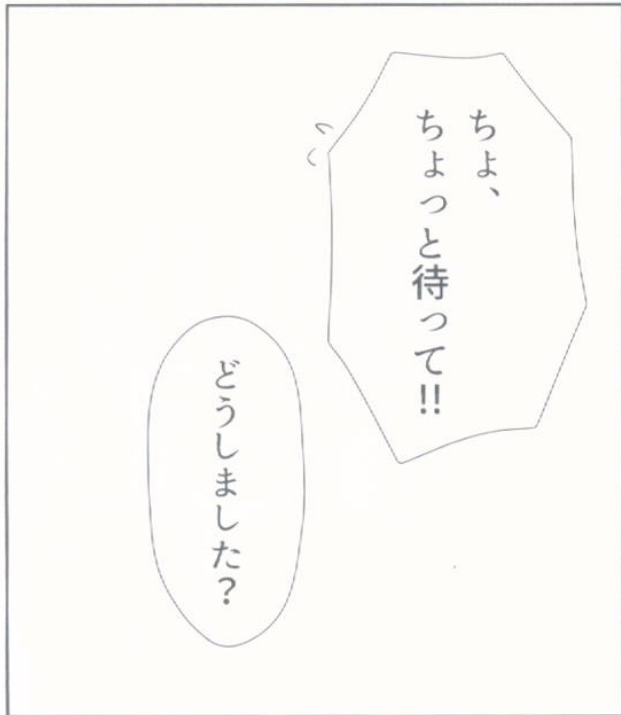 ちょ、
ちょっと待って!!
どうしました?